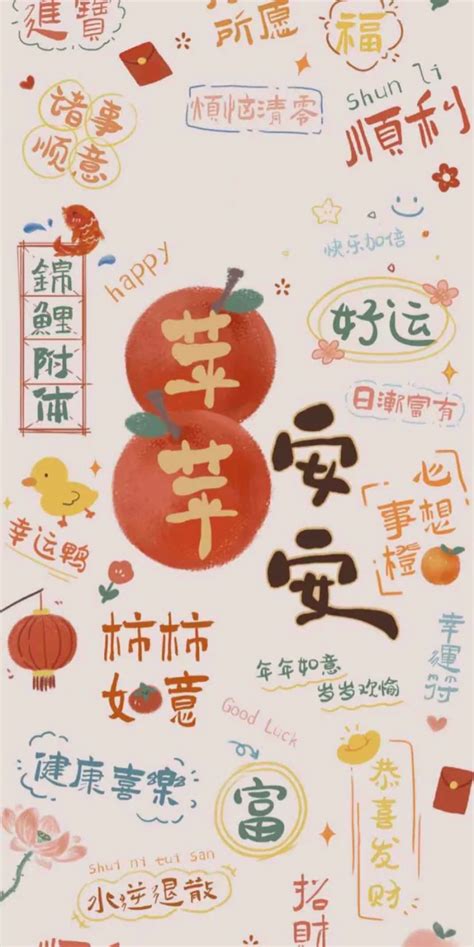 進寶
所愿
福
諸事
顺意
煩恼清零
Shun li
順利
happy
快乐加倍
錦
鯉
附
体
苹
苹
安
安
好运
日漸富有
幸运鸭
心想
事橙
柿柿
如意
年年如意
岁岁欢愉
幸運符
Good Luck
健康喜樂
富
恭喜发财
Shui ni tui san
水逆退散
招財